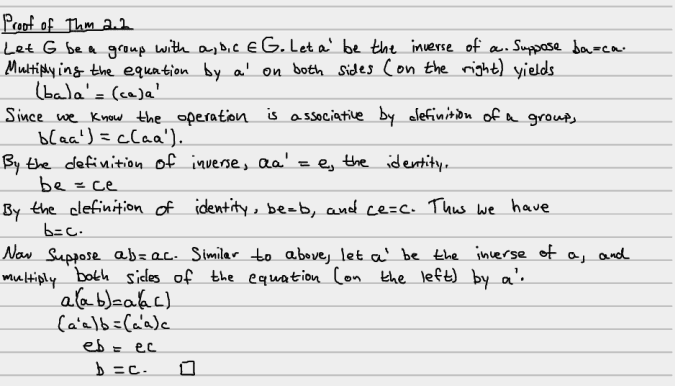 Proof of Thm 2.2
Let G be a group with a,b,c ∈ G. Let a' be the inverse of a. Suppose ba=ca.
Multiplying the equation by a' on both sides (on the right) yields
(ba)a' = (ca)a'
Since we know the operation is associative by definition of a group,
b(aa') = c(aa').
By the definition of inverse, aa' = e, the identity.
be = ce
By the definition of identity, be=b, and ce=c. Thus we have
b=c.
Now Suppose ab=ac. Similar to above, let a' be the inverse of a, and
multiply both sides of the equation (on the left) by a'.
a'(ab)=a'(ac)
(a'a)b=(a'a)c
eb = ec
b = c. □